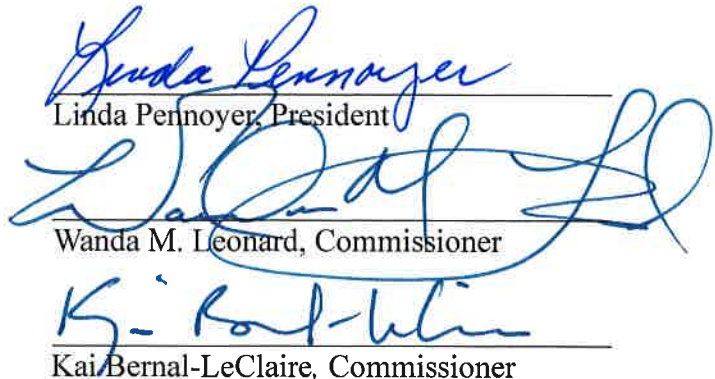 Linda Pennoyer
Linda Pennoyer, President
Wanda M. Leonard, Commissioner
Kai Bernal-LeClaire, Commissioner